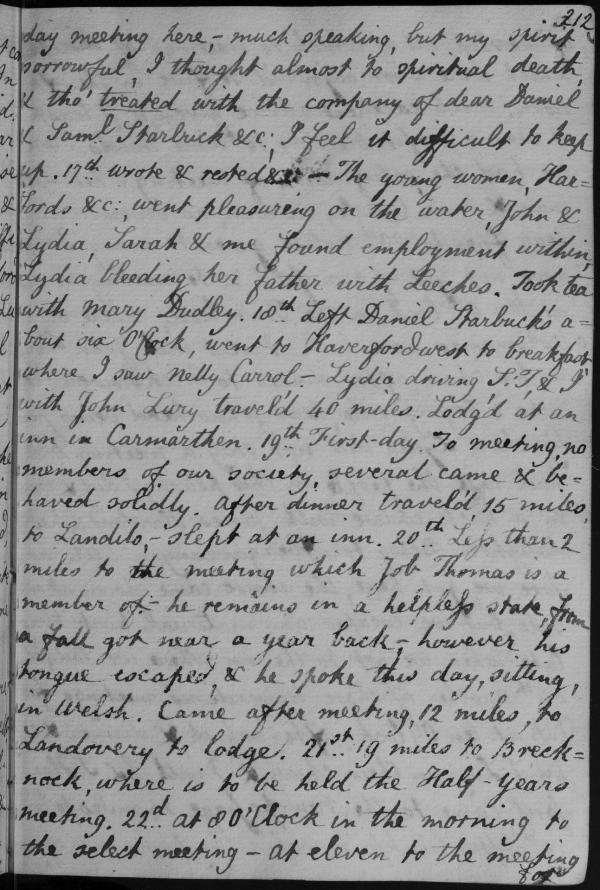 212
day meeting here,- much speaking, but my spirit
sorrowful, I thought almost to spiritual death,
& tho' treated with the company of dear Daniel
& Saml. Starbuck &c; I feel it difficult to keep
up. 17th. wrote & rested &c: — The young women, Har=
fords &c: went pleasureing on the water, John &
Lydia, Sarah & me found employment within,
Lydia bleeding her father with Leeches. Took tea
with Mary Dudley. 18th. Left Daniel Starbuck's a=
bout six O'Clock, went to Haverfordwest to breakfast
where I saw Nelly Carrol.- Lydia driving S:T, & I
with John Lury travel'd 40 miles. Lodg'd at an
inn in Carmarthen. 19th. First-day. To meeting, no
members of our society, several came & be=
haved solidly. After dinner travel'd 15 miles,
to Landilo,- slept at an inn. 20th. Less than 2
miles to the meeting which Job Thomas is a
member of.- he remains in a helpless state, from
a fall got near a year back,- however his
tongue escaped, & he spoke this day, sitting,
in Welsh. Came after meeting, 12 miles, to
Landovery to lodge. 21st. 19 miles to Breck=
nock, where is to be held the Half-years
meeting. 22d. at 8 O'Clock in the morning to
the select meeting - at eleven to the meeting
for